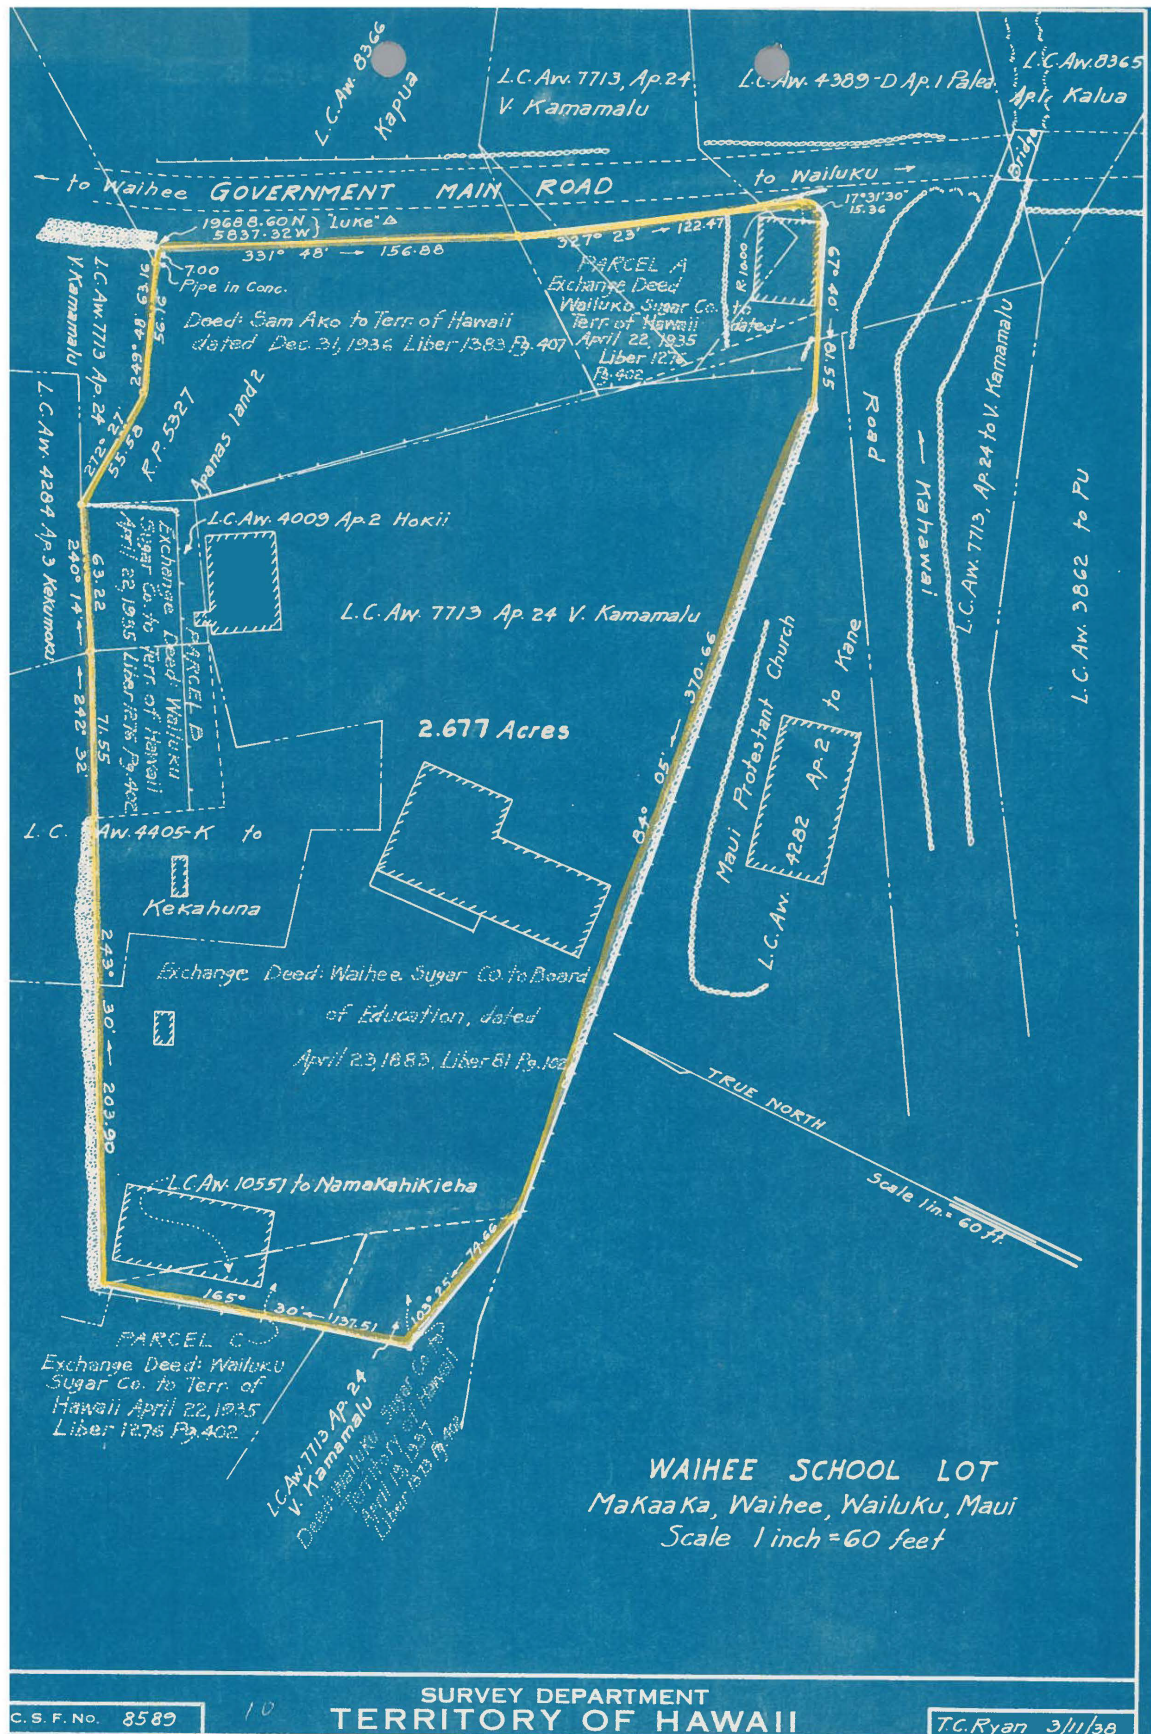 L.C. Aw. 8366
Kapua
L.C. Aw. 7713, Ap. 24
V. Kamamalu
L.C. Aw. 4389-D Ap. 1 Palea
L.C. Aw. 8365
Ap. 1, Kalua
Bridge
← to Waihee GOVERNMENT MAIN ROAD to Wailuku →
19688.60 N } "Luke" △
5837.32 W
331° 48' → 156.88
327° 23' → 122.47
17°31'30"
15.36
R 10.00
67° 40' → 81.55
7.00
Pipe in Conc.
Deed: Sam Ako to Terr. of Hawaii
dated Dec. 31, 1936 Liber 1383 Pg. 407
PARCEL A
Exchange Deed
Wailuku Sugar Co. to
Terr. of Hawaii dated
April 22, 1935
Liber 1276
Pg. 402
L.C. Aw. 7713 Ap. 24
V. Kamamalu
272° 27'
55.58
R.P. 5327
Apanas 1 and 2
L.C. Aw. 4284 Ap. 3
L.C. Aw. 4009 Ap. 2 Hokii
63.22
240° 14' ←
PARCEL B
Exchange Deed: Wailuku
Sugar Co. to Terr. of Hawaii
April 22, 1935 Liber 1276 Pg. 402
71.55
← 242° 32'
L.C. Aw. 7713 Ap. 24 V. Kamamalu
2.677 Acres
84° 05' ← 370.66
Maui Protestant Church
L.C. Aw. 4282 Ap. 2 to Kane
Road
← Kahawai
L.C. Aw. 7713, Ap. 24 to V. Kamamalu
L.C. Aw. 3862 to Pu
L. C. Aw. 4405-K to
Kekahuna
243° 30' ← 203.90
Exchange Deed: Waihee Sugar Co. to Board
of Education, dated
April 23, 1883, Liber 81 Pg. 102
TRUE NORTH
Scale 1 in. = 60 ft.
L.C. Aw. 10551 to Namakahikieha
165° 30' ← 137.51
103° 25' ← 74.66
PARCEL C
Exchange Deed: Wailuku
Sugar Co. to Terr. of
Hawaii April 22, 1935
Liber 1276 Pg. 402
L.C. Aw. 7713 Ap. 24
V. Kamamalu
Deed: Wailuku Sugar Co. to
Territory of Hawaii
April 19, 1937
Liber 1373 Pg. 402
WAIHEE SCHOOL LOT
Makaaka, Waihee, Wailuku, Maui
Scale 1 inch = 60 feet
SURVEY DEPARTMENT
TERRITORY OF HAWAII
C. S. F. No. 8589
10
T.C. Ryan 3/11/38